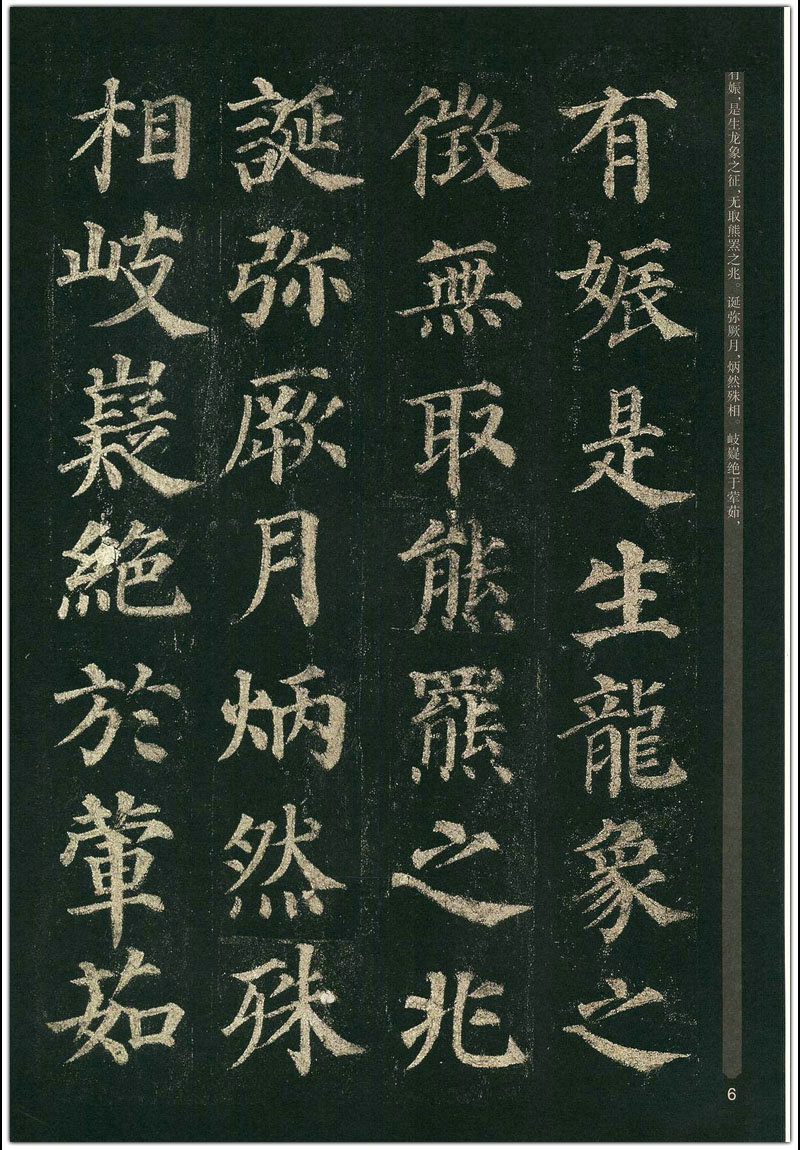 有娠，是生龙象之征，无取熊罴之兆。诞弥厥月，炳然殊相。岐嶷绝于荤茹，
有娠是生龍象之
徵無取熊羆之兆
誕弥厥月炳然殊
相岐嶷絕於葷茹
6